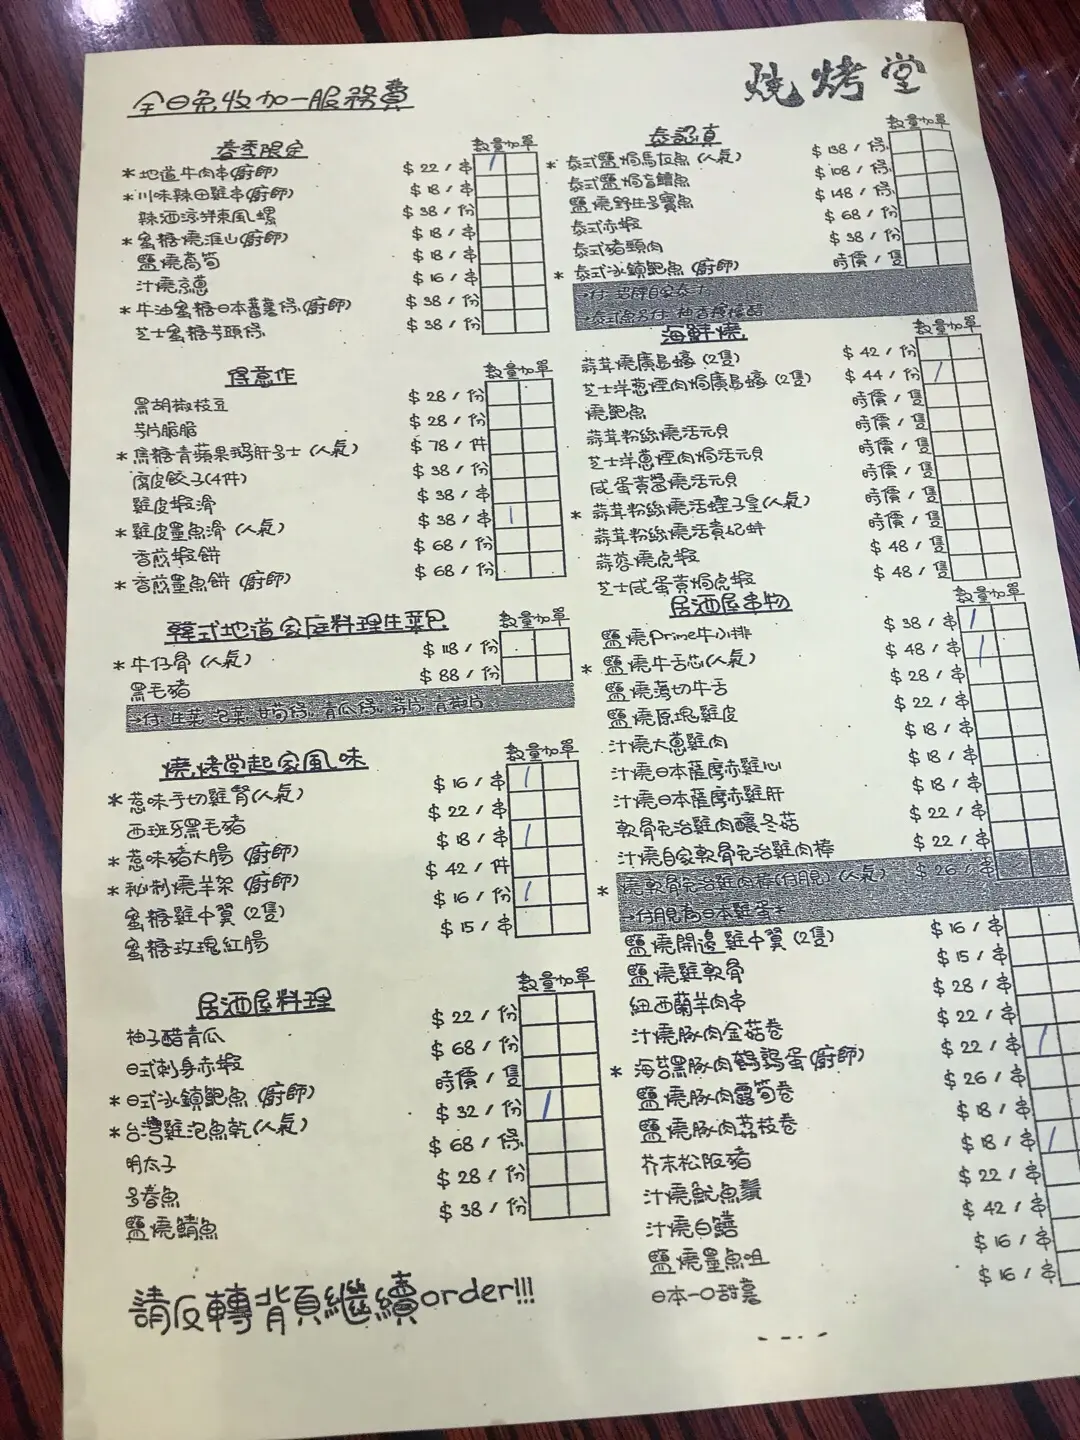 全日免收加一服務費
燒烤堂
春季限定 數量 加單
*地道牛肉串(廚師) $22/串 1
*川味辣田雞串(廚師) $18/串
辣酒涼拌東風螺 $38/份
*蜜糖燒淮山(廚師) $18/串
鹽燒萵筍 $18/串
汁燒京蔥 $16/串
*牛油蜜糖日本蕃薯條(廚師) $38/份
芝士蜜糖芋頭條 $38/份
得意作 數量 加單
黑胡椒枝豆 $28/份
芍片脆脆 $28/份
*焦糖青蘋果鵝肝多士(人氣) $78/件
腐皮餃子(4件) $38/份
雞皮蝦滑 $38/串
*雞皮墨魚滑(人氣) $38/串 1
香煎蝦餅 $68/份
*香煎墨魚餅(廚師) $68/份
韓式地道家庭料理生菜包 數量 加單
*牛仔骨(人氣) $118/份
黑毛豬 $88/份
燒烤堂起家風味 數量 加單
*惹味手切雞腎(人氣) $16/串 1
西班牙黑毛豬 $22/串
*惹味豬大腸(廚師) $18/串 1
*秘制燒羊架(廚師) $42/件
蜜糖雞中翼(2隻) $16/份 1
蜜糖玫瑰紅腸 $15/串
居酒屋料理 數量 加單
柚子醋青瓜 $22/份
日式刺身赤蝦 $68/份
*日式冰鎮鮑魚(廚師) 時價/隻
*台灣雞泡魚乾(人氣) $32/份 1
明太子 $68/條
多春魚 $28/份
鹽燒鯖魚 $38/份
請反轉背頁繼續order!!!
泰認真 數量 加單
*泰式鹽焗烏頭魚(人氣) $138/條
泰式鹽焗盲鰽魚 $108/條
鹽燒野生多寶魚 $148/條
泰式赤蝦 $68/份
泰式豬頸肉 $38/份
*泰式冰鎮鮑魚(廚師) 時價/隻
海鮮燒 數量 加單
蒜茸燒廣島蠔(2隻) $42/份
芝士洋蔥煙肉焗廣島蠔(2隻) $44/份 1
燒鮑魚 時價/隻
蒜茸粉絲燒活元貝 時價/隻
芝士洋蔥煙肉焗活元貝 時價/隻
咸蛋黃醬燒活元貝 時價/隻
*蒜茸粉絲燒活蟶子皇(人氣) 時價/隻
蒜茸粉絲燒活貴妃蚌 時價/隻
蒜蓉燒虎蝦 $48/隻
芝士咸蛋黃焗虎蝦 $48/隻
居酒屋串物 數量 加單
鹽燒Prime牛小排 $38/串 1
*鹽燒牛舌芯(人氣) $48/串 1
鹽燒薄切牛舌 $28/串
鹽燒原塊雞皮 $22/串
汁燒大蔥雞肉 $18/串
汁燒日本薩摩赤雞心 $18/串
汁燒日本薩摩赤雞肝 $18/串
軟骨免治雞肉釀冬菇 $22/串
汁燒自家軟骨免治雞肉棒 $22/串
*燒軟骨免治雞肉棒(月見)(人氣) $26/串
鹽燒開邊雞中翼(2隻) $16/串
鹽燒雞軟骨 $15/串
紐西蘭羊肉串 $28/串
汁燒豚肉金菇卷 $22/串
*海苔黑豚肉鵪鶉蛋(廚師) $22/串 1
鹽燒豚肉露筍卷 $26/串
鹽燒豚肉荔枝卷 $18/串
芥末松阪豬 $18/串 1
汁燒魷魚鬚 $22/串
汁燒白鱔 $42/串
鹽燒墨魚咀 $16/串
日本一口甜薯 $16/串